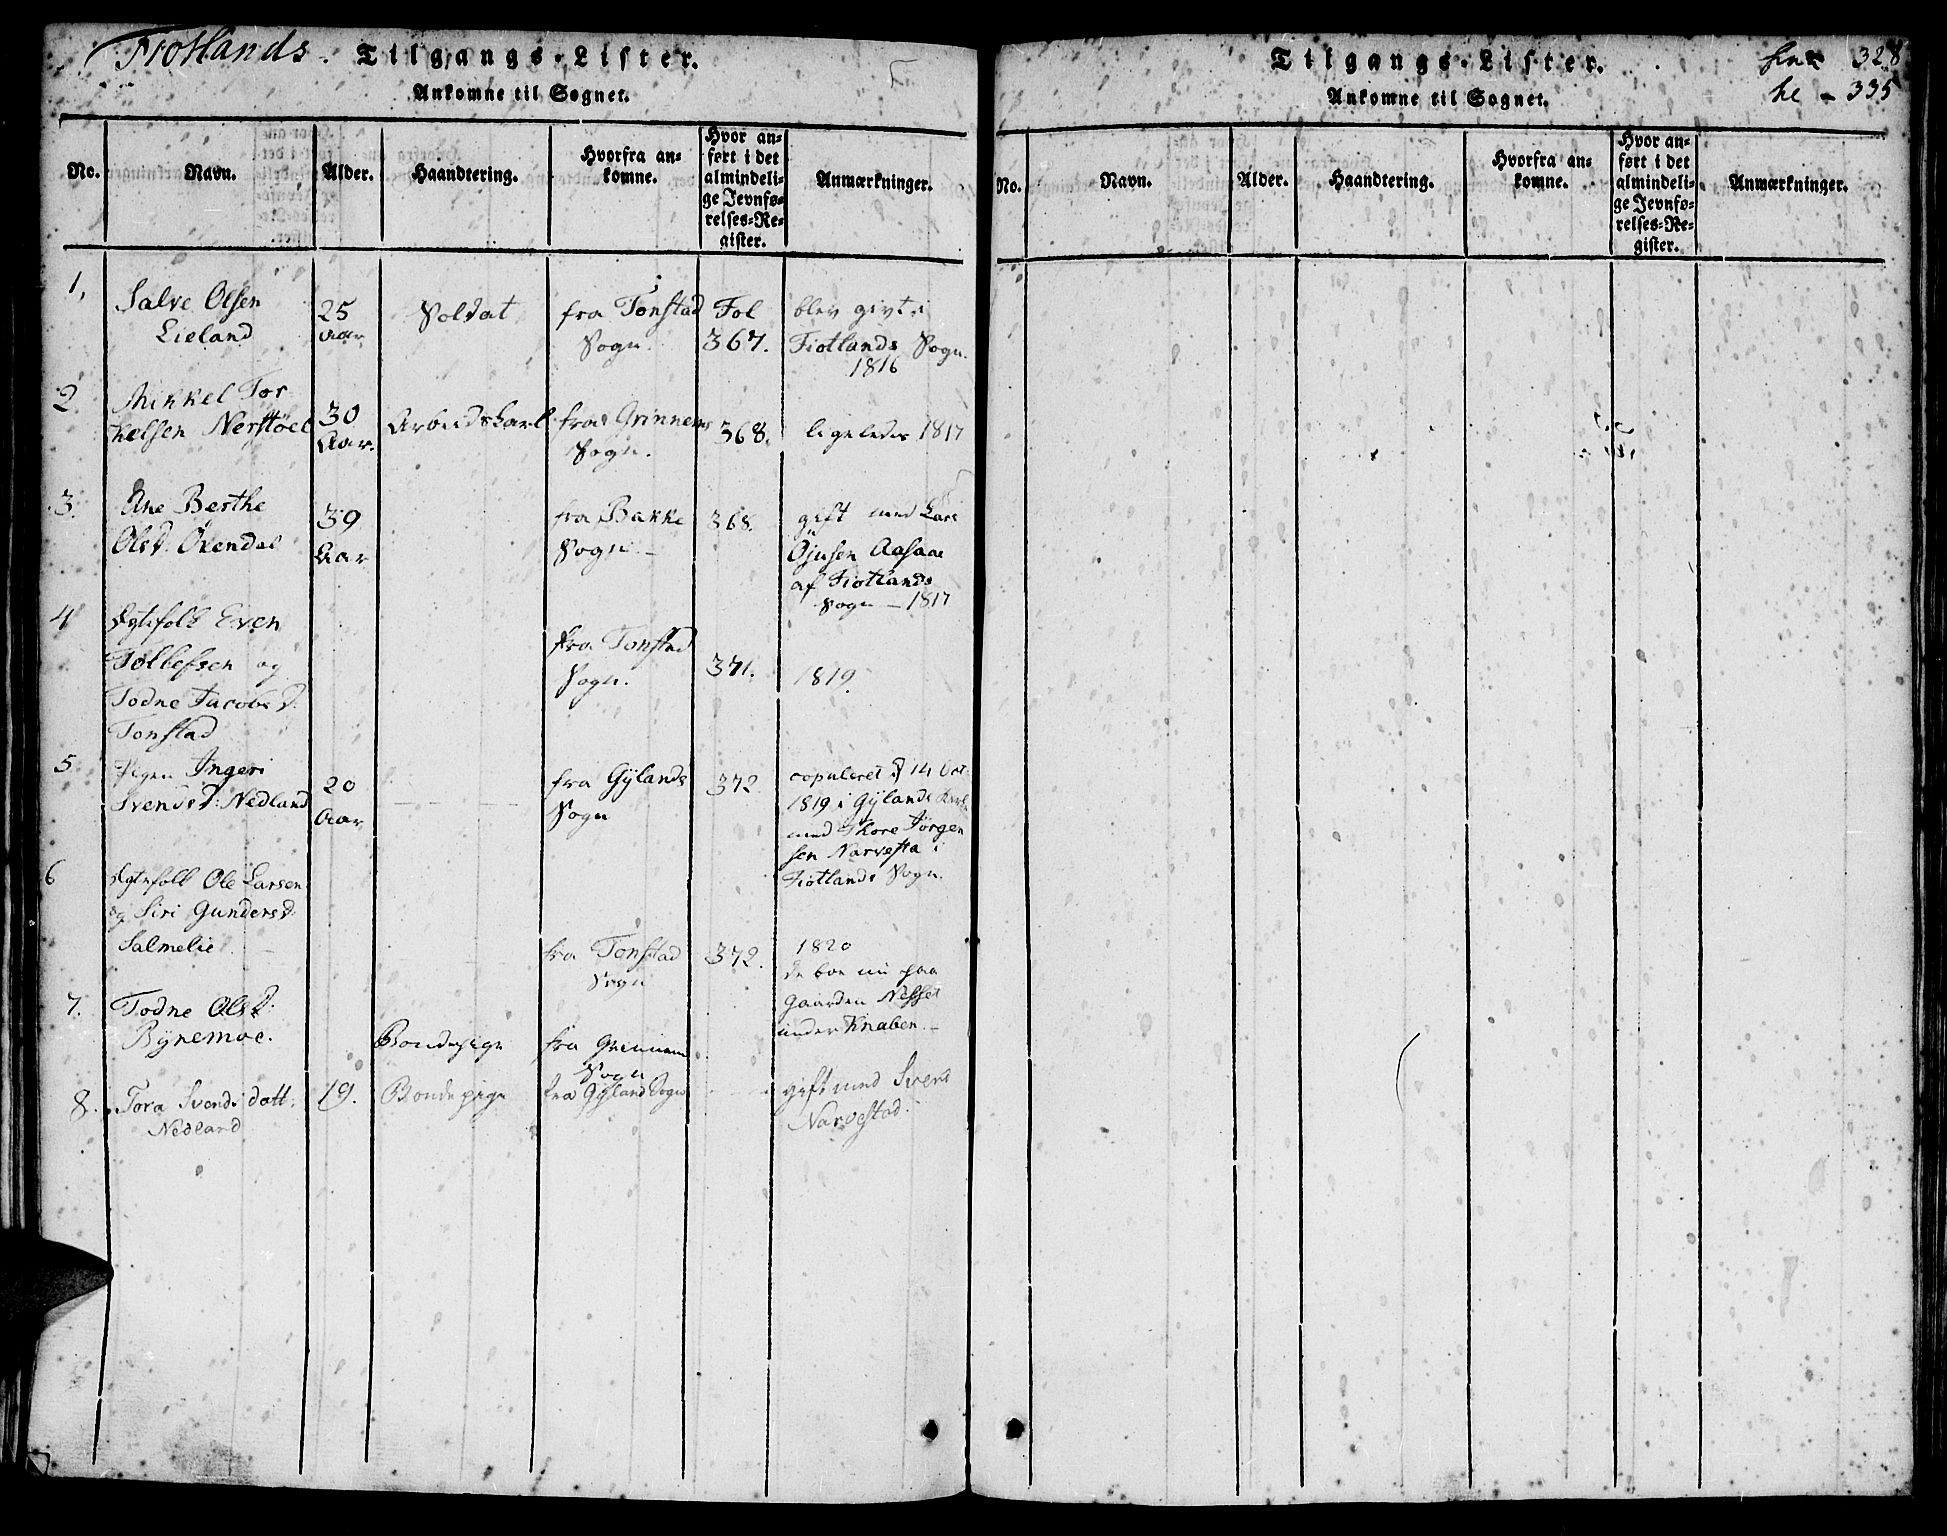 Fiotlands. Tilgangs-Lister.
Ankomne til Sognet.
No. Navn. Alder. Haandtering. Hvorfra an-
komne. Hvor an-
ført i det
almindeli-
ge Jevnfø-
relses-Re-
gister. Anmærkninger.
1, Salve Olsen
Lieland
25
Aar
Soldat
fra Tonstad
Sogn.
Fol
367.
blev givt i
Fiotlands Sogn.
1816
2 Mikkel Tor
kelsen Nerstøel
30
Aar.
Arbeidskarl
fra Grinnems
Sogn.
368.
ligeledes 1817
3. Ane Berthe
Olsd. Øvendal
39
Aar
fra Bakke
Sogn. –
368.
gift med Lars
Öjusen Aasaae
af Fiotlands
Sogn – 1817
4 Ægtefolk Even
Tollefsen og
Todne Jacobsd:
Tonstad
fra Tonstad
Sogn.
371.
1819.
5 Pigen Ingeri
Svendsd: Nedland
20
Aar
fra Gÿlands
Sogn
372.
copuleret d 14 Oct:
1819 i Gÿlands Kirke
med Thore Jørgen
sen Narvesta i
Fiotlands Sogn.
6 Ægtefolk Ole Larsen
og Siri Gundersd:
Salmelie
fra Tonstad
Sogn
372.
1820
de boe nu paa
Gaarden Nesset
under Knaben. –
7. Todne Olsd:
Bÿremoe.
Bondepige
fra Grinnem
Sogn
8. Tora Svendsdatt.
Nedland
19.
Bondepige
fra Gyland Sogn
gift med Svend
Narvestad.
Tilgangs-Lister.
Ankomne til Sognet.
328
335
No. Navn. Alder. Haandtering. Hvorfra an-
komne. Hvor an-
ført i det
almindeli-
ge Jevnfø-
relses-Re-
gister. Anmærkninger.